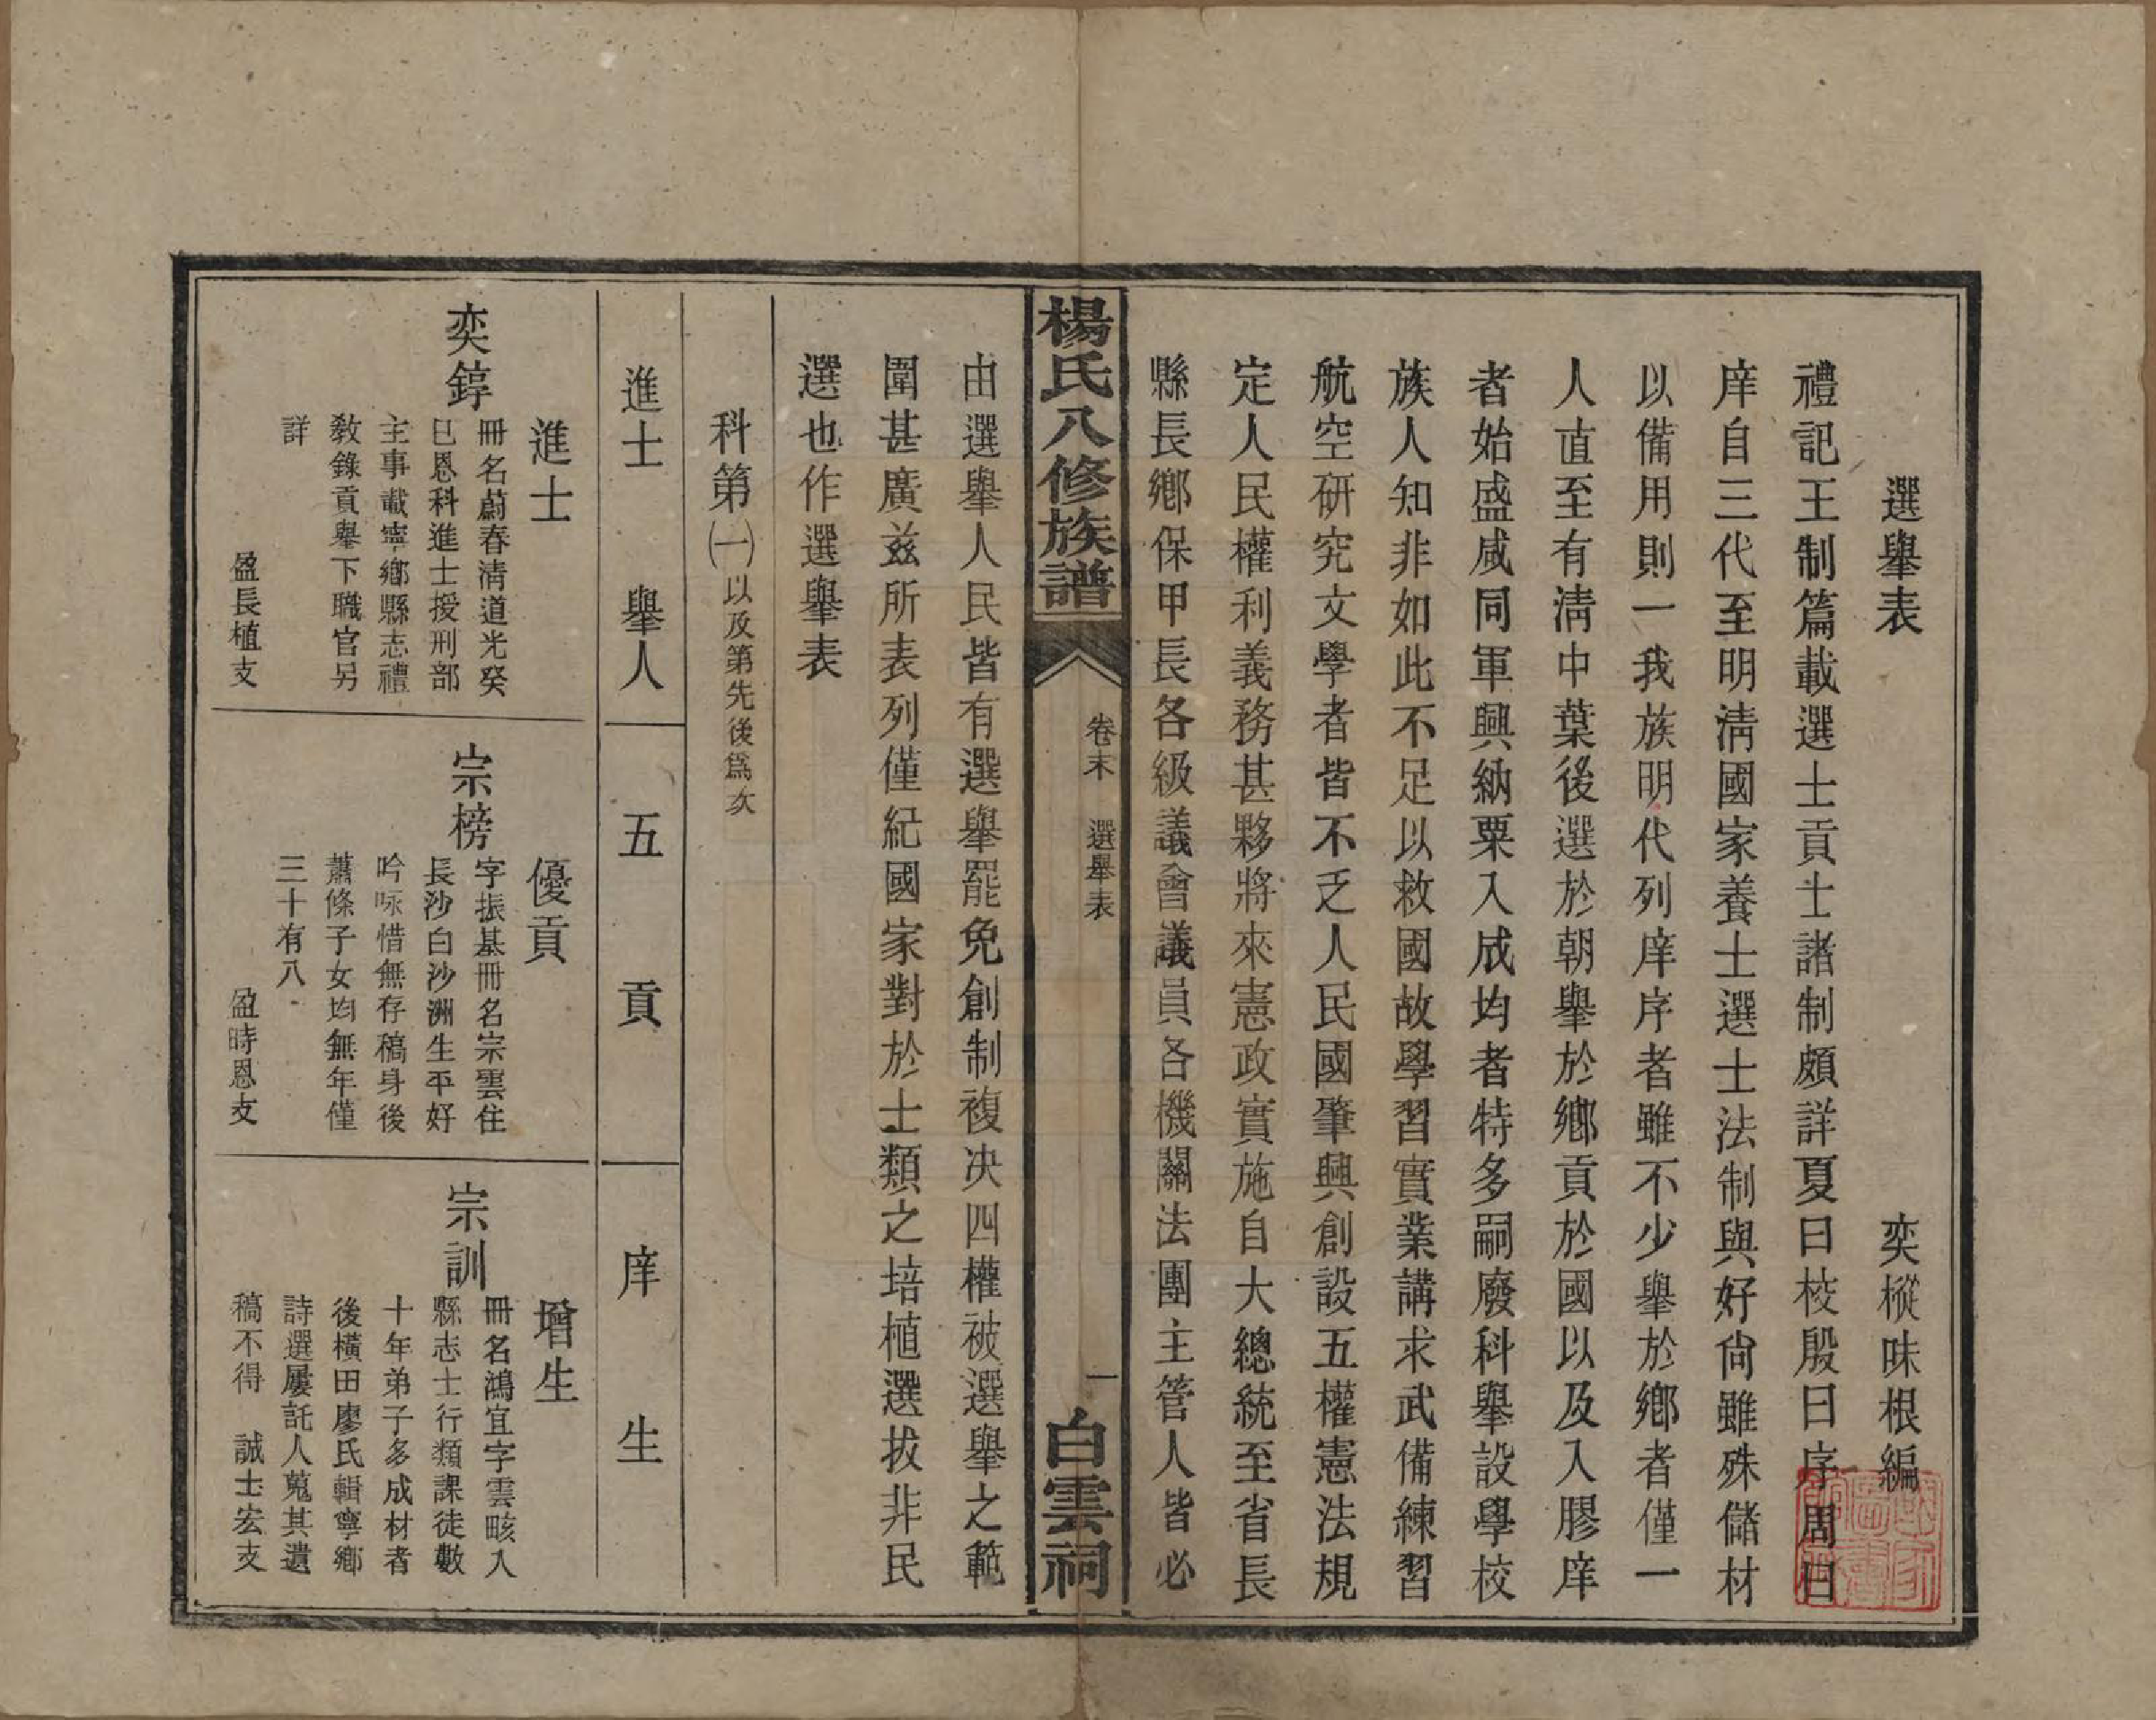 選舉表
奕樅味根編
禮記王制篇載選士貢士諸制頗詳夏曰校殷曰序周曰
庠自三代至明淸國家養士選士法制與好尙雖殊儲材
以備用則一我族明代列庠序者雖不少舉於鄕者僅一
人直至有淸中葉後選於朝舉於鄕貢於國以及入膠庠
者始盛咸同軍興納粟入成均者特多嗣廢科舉設學校
族人知非如此不足以救國故學習實業講求武備練習
航空研究文學者皆不乏人民國肇興創設五權憲法規
定人民權利義務甚夥將來憲政實施自大總統至省長
縣長鄕保甲長各級議會議員各機關法團主管人皆必
楊氏八修族譜
卷末 選舉表
一
白雲祠
由選舉人民皆有選舉罷免創制複決四權被選舉之範
圍甚廣兹所表列僅紀國家對於士類之培植選拔非民
選也作選舉表
科第㈠以及第先後爲次
進士 舉人
五貢
庠生
進士
奕錞
冊名蔚春淸道光癸
巳恩科進士授刑部
主事載寧鄕縣志禮
敎錄貢舉下職官另
詳
盈長植支
優貢
宗榜
字振基冊名宗雲住
長沙白沙洲生平好
吟咏惜無存稿身後
蕭條子女均無年僅
三十有八
盈時恩支
增生
宗訓
冊名鴻宜字雲畡入
縣志士行類課徒數
十年弟子多成材者
後橫田廖氏輯寧鄕
詩選屢託人蒐其遺
稿不得 誠士宏支